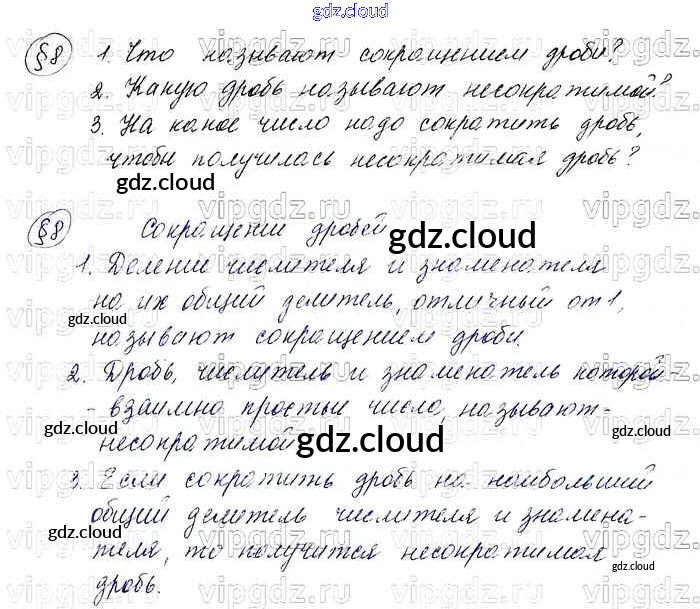 gdz.cloud
§8 1. Что называют сокращением дроби?
2. Какую дробь называют несократимой?
3. На какое число надо сократить дробь,
чтобы получилась несократимая дробь?
gdz.cloud
§8 Сокращение дробей
gdz.cloud
1. Деление числителя и знаменателя
на их общий делитель, отличный от 1,
gdz.cloud
gdz.cloud
называют сокращением дроби.
2. Дробь, числитель и знаменатель которой -
- взаимно простые числа, называют
gdz.cloud
несократимой
gdz.cloud
3. Если сократить дробь на наибольший
общий делитель числителя и знамена-
gdz.cloud
теля, то получится несократимая
gdz.cloud
дробь.
gdz.cloud